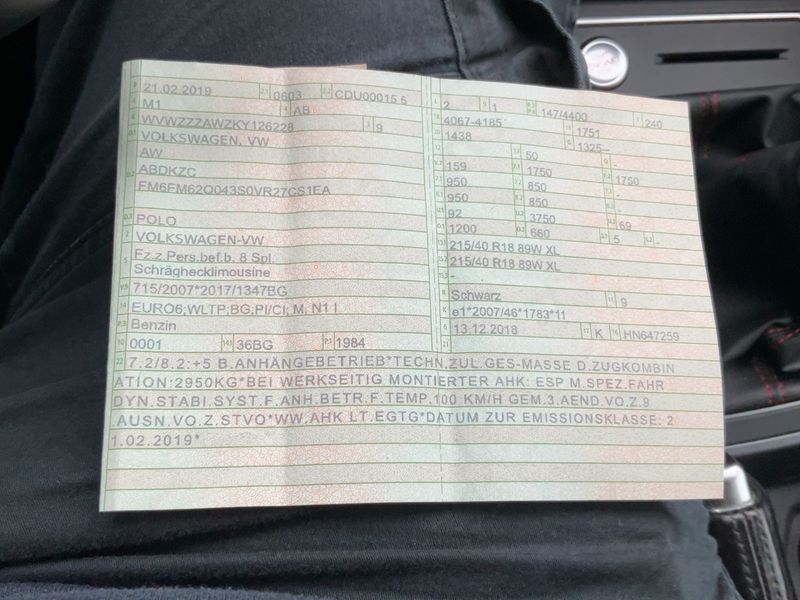 B 21.02.2019 2.1 0603 2.2 CDU00015 5
J M1 4 AB
E WVWZZZAWZKY126228 3 9
D.1 VOLKSWAGEN, VW
AW
D.2 ABDKZC
FM6FM62Q043S0VR27CS1EA
D.3 POLO
2 VOLKSWAGEN-VW
5 Fz.z.Pers.bef.b. 8 Spl.
Schräghecklimousine
V.9 715/2007*2017/1347BG
14 EURO6;WLTP;BG,PI/CI; M, N1 I
P.3 Benzin
10 0001 14.1 36BG P.1 1984
L 2 9 1 P.2 P.4 147/4400 T 240
18 4067-4185 19 1751
20 1438 G 1325--
12 - 13 50 Q -
V.7 159 F.1 1750 F.2 1750
7.1 950 7.2 850 7.3 -
8.1 950 8.2 850 8.3 -
U.1 92 U.2 3750 U.3 69
O.1 1200 O.2 660 S.1 5 S.2 -
15.1 215/40 R18 89W XL
15.2 215/40 R18 89W XL
15.3 -
R Schwarz 11 9
K e1*2007/46*1783*11
6 13.12.2018 17 K 16 HN647259
21
22 7.2/8.2:+5 B.ANHÄNGEBETRIEB*TECHN.ZUL.GES-MASSE D.ZUGKOMBIN
ATION:2950KG*BEI WERKSEITIG MONTIERTER AHK: ESP M.SPEZ.FAHR
DYN.STABI.SYST.F.ANH.BETR.F.TEMP.100 KM/H GEM.3.AEND.VO.Z.9
.AUSN.VO.Z.STVO*WW.AHK LT.EGTG*DATUM ZUR EMISSIONSKLASSE: 2
1.02.2019*